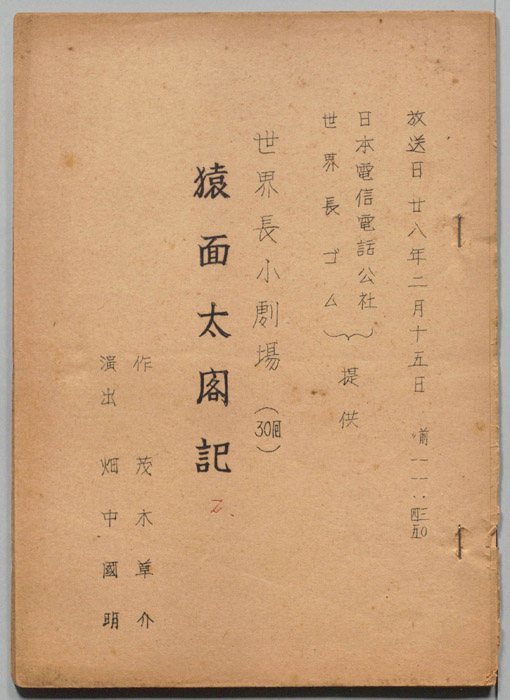 放送日 廿八年二月十五日 前一一:三〇 四五
日本電信電話公社
世界長ゴム
提供
世界長小劇場 (30回)
猿面太閤記
作 茂木草介
演出 畑中國明